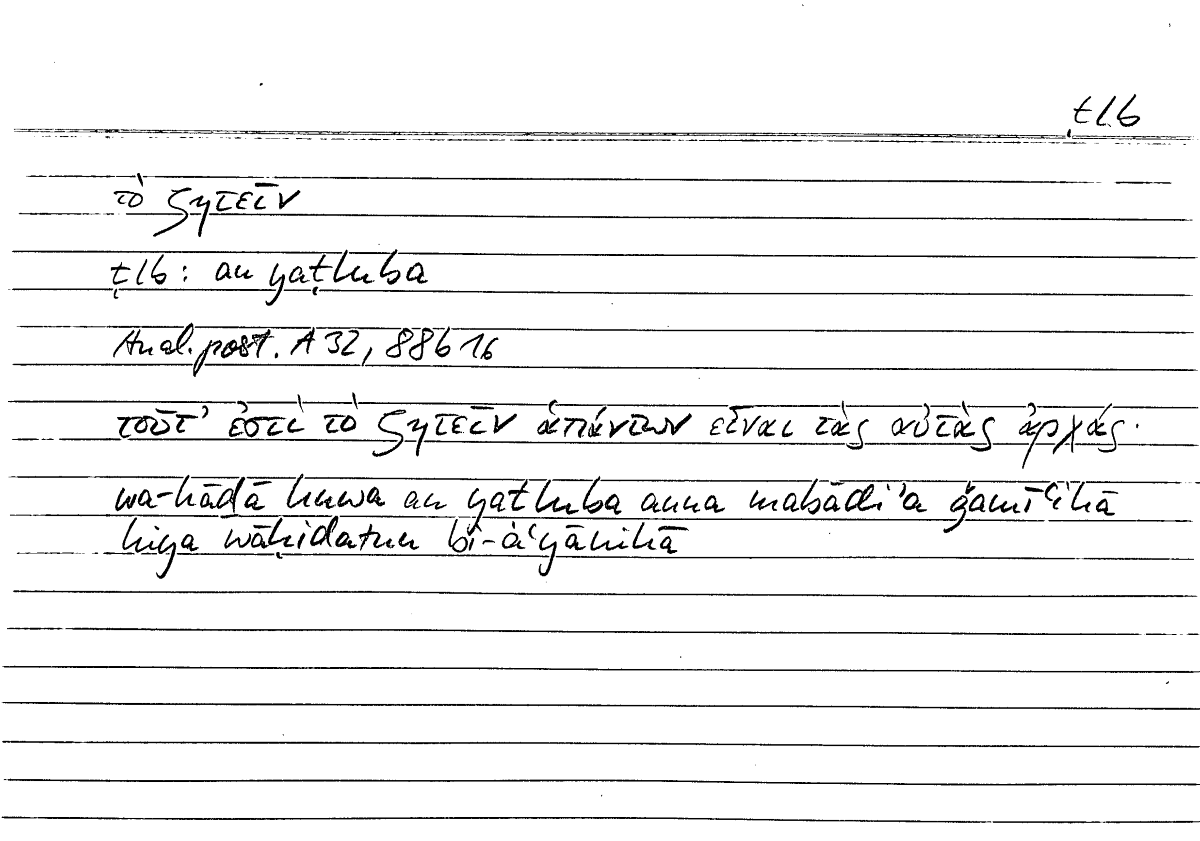 ṭlb
τὸ ζητεῖν
ṭlb: an yaṭluba
Anal. post. A 32, 88b16
τοῦτ᾽ ἐστὶ τὸ ζητεῖν ἁπάντων εἶναι τὰς αὐτὰς ἀρχάς·
wa-hāḏā huwa an yaṭluba anna mabādiʾa ǧamīʿihā
hiya wāḥidatun bi-aʿyānihā